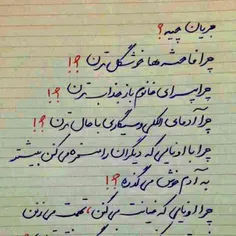 جریان چیه ؟
چرا فاحشه ها خوشگل ترن ؟!
چرا پسرای خانوم باز جذاب ترن ؟!
چرا آدمای الکلی و سیگاری با حال ترن ؟!
چرا با اونایی که دیگران را مسخره می کنن بیشتر
به آدم خوش می گذره ؟!
چرا اونایی که خیانت می کنن ، تهمت می زنن